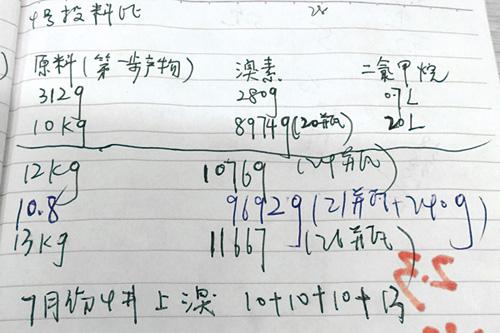 4号投料比
原料(第一步产物) 溴素 二氯甲烷
312g 280g 0.7L
10kg 8974g(20瓶) 20L
12kg 10769g (24瓶)
10.8 9692g (21瓶+240g)
13kg 11667 (26瓶)
7月份4# 上溴 10+10+10+13